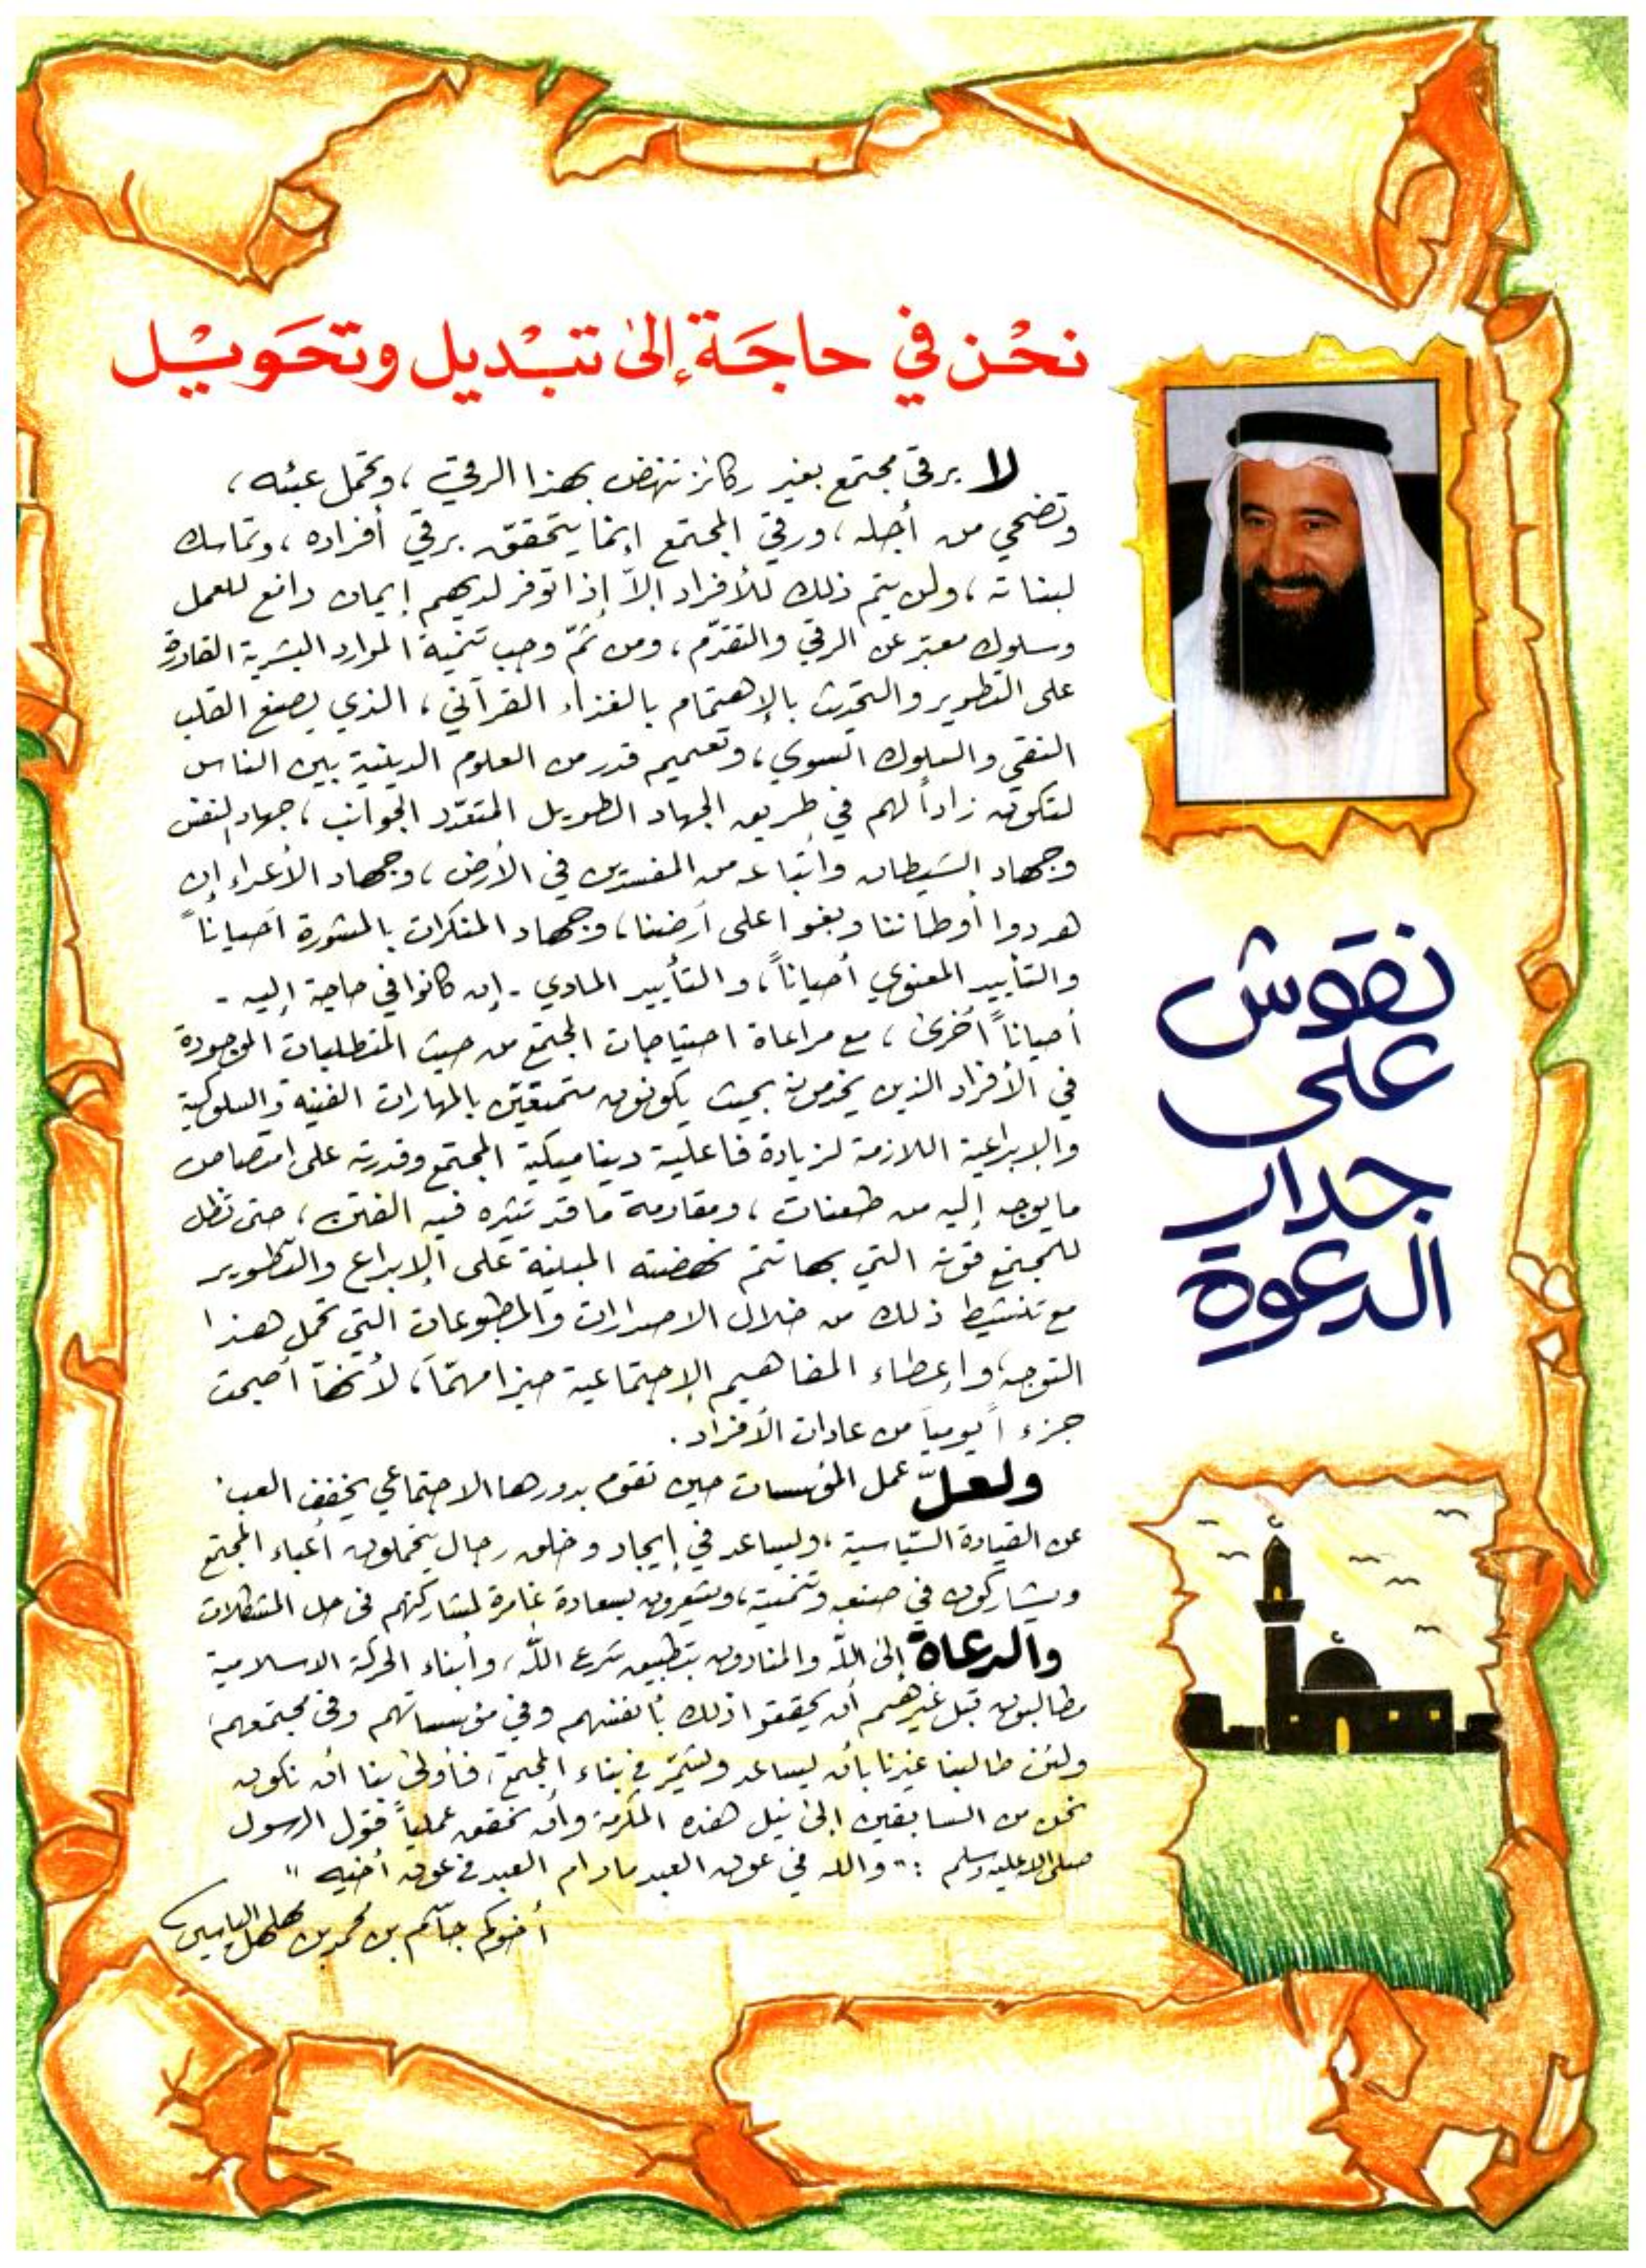 نحْن في حاجَة إلى تبْديل وتحَويْل
لا يرقى مجتمع بغير ركائز تنهض بهذا الرقيّ، وتحمل عبئه،
وتضحي من أجله، ورقيّ المجتمع إنما يتحقق برقي أفراده، وتماسك
لبناته، ولن يتم ذلك للأفراد إلاّ إذا توفر لديهم إيمان دافع للعمل
وسلوك معبّر عن الرقي والتقدّم، ومن ثمّ وجب تنمية الموارد البشرية القادرة
على التطوير والتحديث بالإهتمام بالغذاء القرآني، الذي يصنع القلب
النقي والسلوك السوي، وتعميم قدر من العلوم الدينية بين الناس
لتكون زاداً لهم في طريق الجهاد الطويل المتعدّد الجوانب، جهاد النفس
وجهاد الشيطان وأتباعه من المفسدين في الأرض، وجهاد الأعداء إن
هددوا أوطاننا وبغوا على أرضنا، وجهاد المنكرات بالمشورة أحياناً
والتأييد المعنوي أحياناً، والتأييد المادي - إن كانوا في حاجة إليه -
أحياناً أخرى، مع مراعاة احتياجات المجتمع من حيث المتطلبات الموجودة
في الأفراد الذين يخدمون بحيث يكونون متمتعين بالمهارات الفنية والسلوكية
والإبداعية اللازمة لزيادة فاعلية ديناميكية المجتمع وقدرته على امتصاص
ما يوجه إليه من طعنات، ومقاومة ما قد تثيره فيه الفتن، حتى تظل
للمجتمع قوته التي بها تتم نهضته المبنية على الإبداع والتطوير
مع تنشيط ذلك من خلال الاصدارات والمطبوعات التي تحمل هذا
التوجه، وإعطاء المفاهيم الإجتماعية حيزا مهمّاً، لأنهّا أصبحت
جزء اً يومياً من عادات الأفراد.
ولعلّ عمل المؤسسات حين تقوم بدورها الاجتماعي يخفف العبء
عن القيادة السّياسية، ويساعد في إيجاد وخلق رجال يتحملون أعباء المجتمع
ويشاركون في صنعه وتنميته، ويشعرون بسعادة غامرة لمشاركتهم في حل المشكلات
والدعاة إلى اللّه والمنادون بتطبيق شرع اللّه، وأبناء الحركة الاسلامية
مطالبون قبل غيرهم أن يحققوا ذلك بأنفسهم وفي مؤسساتهم وفي مجتمعهم،
ولئن طالبنا غيرنا بأن يساعد ويشمّر في بناء المجتمع، فأولى بنا أن نكون
نحن من السابقين إلى نيل هذه المكرمة وأن نحقق عملياً قول الرسول
صلى الله عليه وسلم : " والله في عون العبد مادام العبد في عون أخيه "
أخوكم جاسم بن محمد بن مهلهل الياسين
نقوش
على
جدار
الدعوة